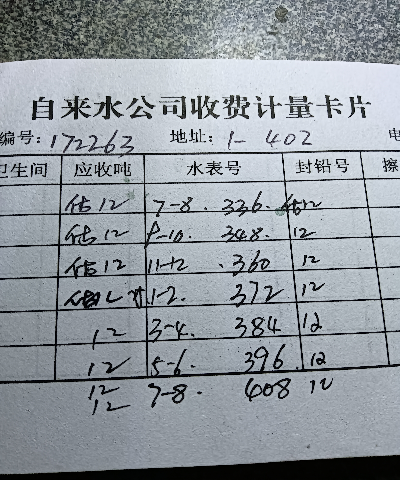 自来水公司收费计量卡片
编号: 172263 地址: 1-402 电
卫生间 应收吨 水表号 封铅号 擦
估12 7-8. 336. 估12
估12 9-10. 348. 12
估12 11-12 .360 12
1-2. 372 12
12 3-4. 384 12
12 5-6. 396. 12
12 7-8. 408 12
12